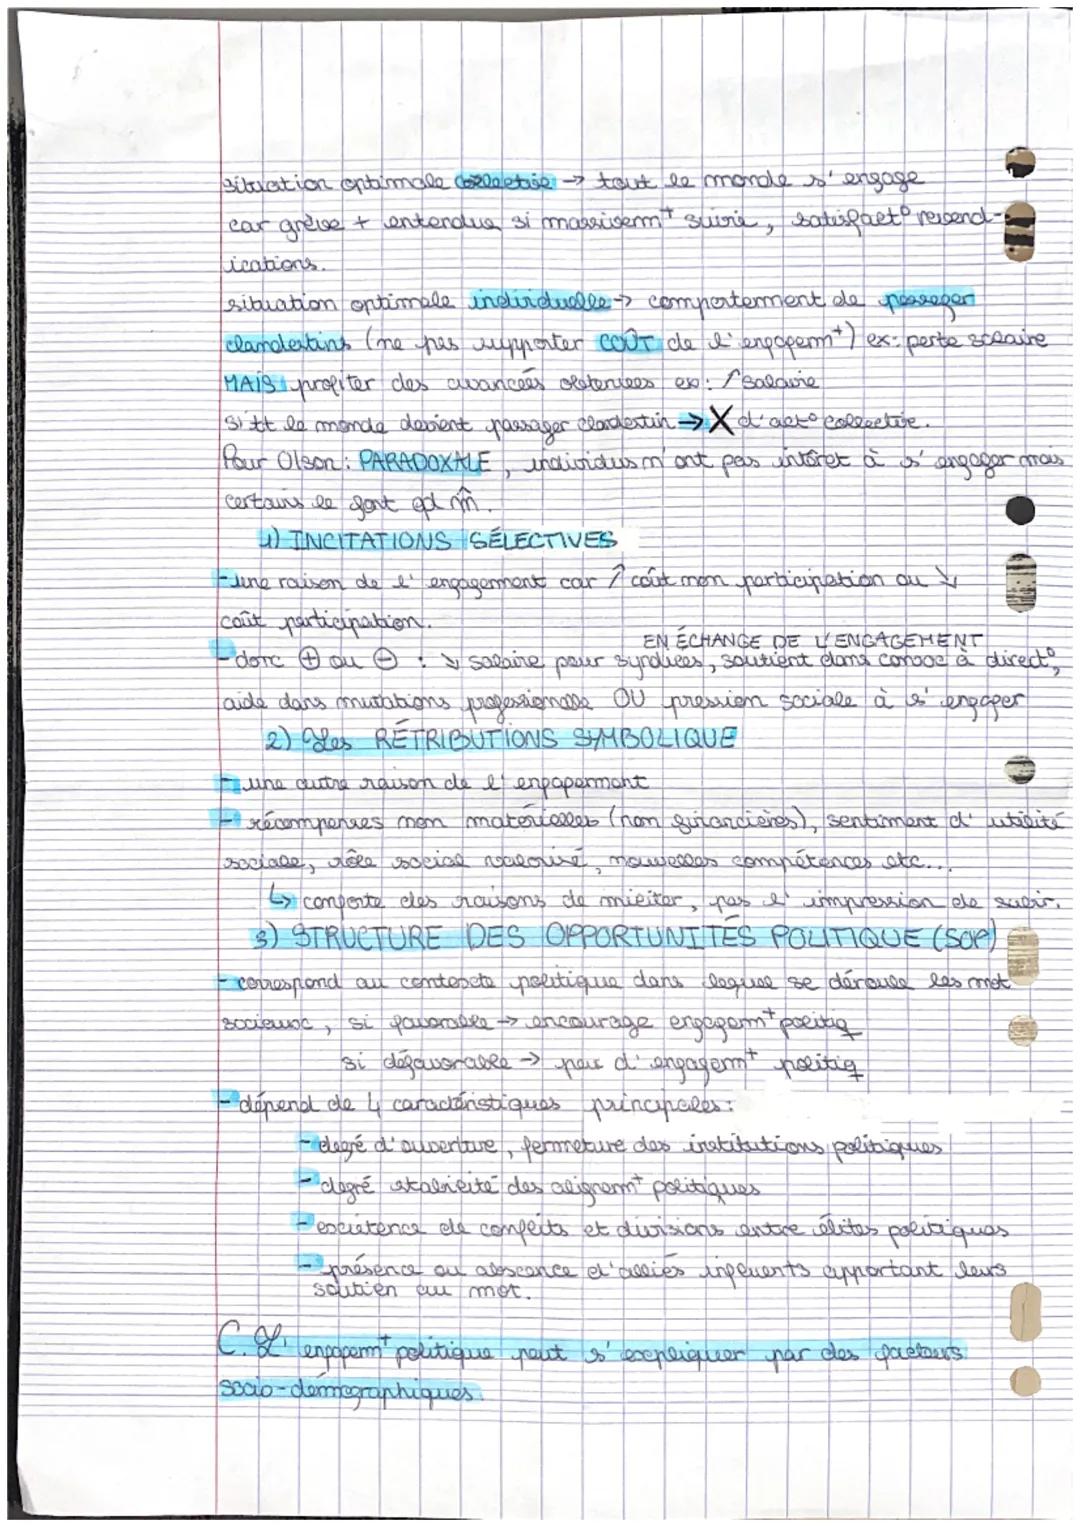 situation optimale collective → tout le monde s'engage
car grève + entendue si massivemt suivie, satisfact° revend-
ications.
situation optimale individuelle → comportement de passager
clandestins (ne pas supporter COÛT de l'engagemt) ex: perte salaire
MAIS profiter des avancées obtenues ex: ↗ salaire
si tt le monde devient passager clandestin → X d'act° collective.
Pour Olson: PARADOXALE, individus n'ont pas intêret à s'engager mais
certains le font qd m̂.
1) INCITATIONS SÉLECTIVES
- une raison de l'engagement car ↗ coût non participation ou ↘
coût participation.
EN ÉCHANGE DE L'ENGAGEMENT
- donc ⊕ ou ⊖ : ↘ salaire pour syndiqués, soutient dans convoc à direct°,
aide dans mutations professionnelle OU pression sociale à s'engager
2) Les RÉTRIBUTIONS SYMBOLIQUE
- une autre raison de l'engagement
- récompenses non matérielles (non financières), sentiment d'utilité
sociale, rôle social valorisé, nouvelles compétences etc...
↳ conforte des raisons de militer, pas l'impression de subir.
3) STRUCTURE DES OPPORTUNITÉS POLITIQUE (SOP)
- correspond au contexte politique dans lequel se déroule les mot
sociaux, si favorable → encourage engagemt politiq
si défavorable → peu d'engagemt politiq
- dépend de 4 caractéristiques principales:
- degré d'ouverture, fermeture des institutions politiques
- degré stabilité des alignemt politiques
- existence de conflits et divisions entre élites politiques
- présence ou abscence d'alliés influents apportant leurs
soutien au mot.
C. L'engagemt politique peut s'expliquer par des facteurs
socio-démographiques.